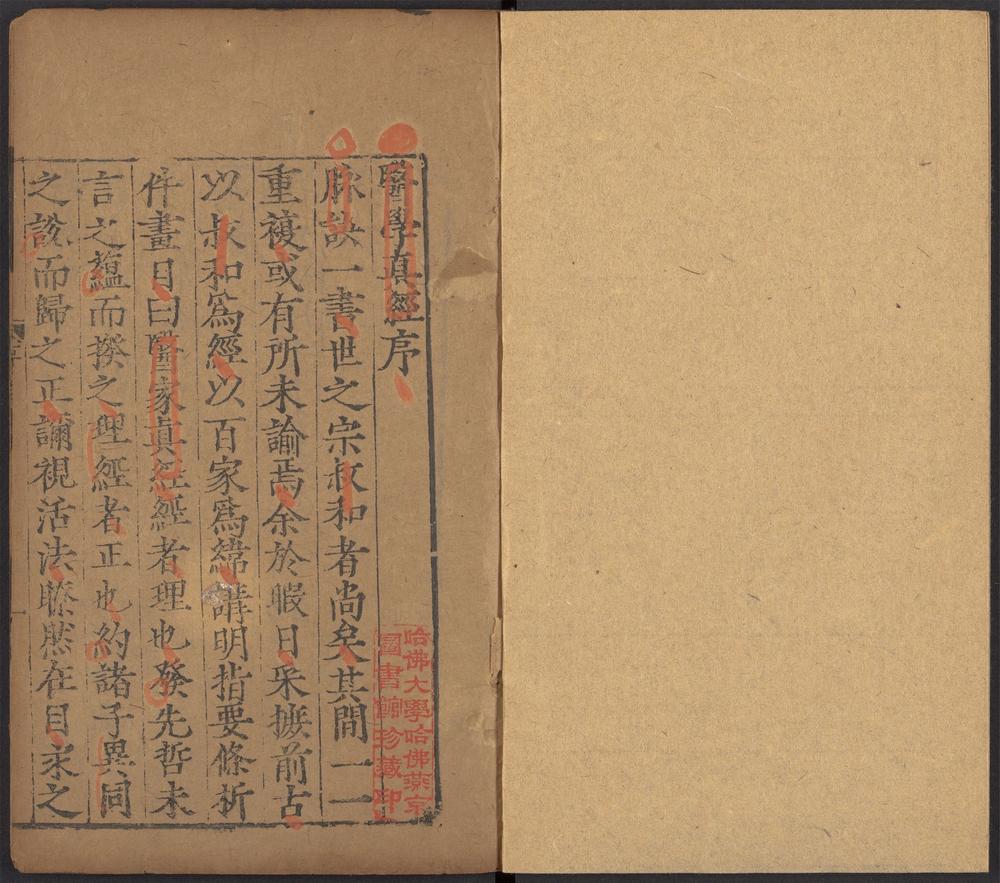 醫學真經序
脉訣一書世之宗叔和者尚矣其間一一
重複或有所未諭焉余於暇日采摭前古
以叔和為經以百家爲緯講明指要條析
件畫目曰醫家真經經者理也發先哲未
言之蘊而揆之理經者正也約諸子異同
之說而歸之正譾視活法瞭然在目求之
哈佛大學哈佛燕京
圖書館珍藏印